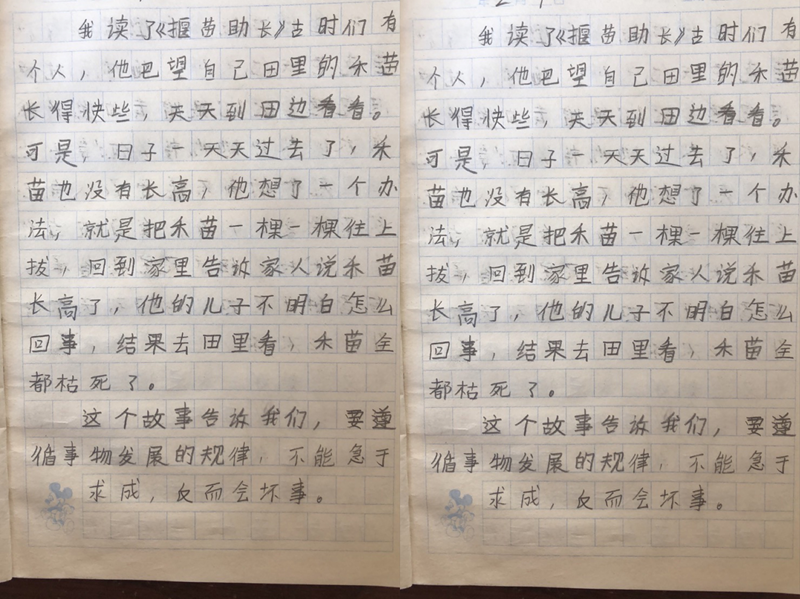 我读了《揠苗助长》古时们有
个人，他巴望自己田里的禾苗
长得快些，天天到田边看看。
可是，日子一天天过去了，禾
苗也没有长高，他想了一个办
法，就是把禾苗一棵一棵往上
拔，回到家里告诉家人说禾苗
长高了，他的儿子不明白怎么
回事，结果去田里看，禾苗全
都枯死了。
这个故事告诉我们，要遵
循事物发展的规律，不能急于
求成，反而会坏事。
我读了《揠苗助长》古时们有
个人，他巴望自己田里的禾苗
长得快些，天天到田边看看。
可是，日子一天天过去了，禾
苗也没有长高，他想了一个办
法，就是把禾苗一棵一棵往上
拔，回到家里告诉家人说禾苗
长高了，他的儿子不明白怎么
回事，结果去田里看，禾苗全
都枯死了。
这个故事告诉我们，要遵
循事物发展的规律，不能急于
求成，反而会坏事。